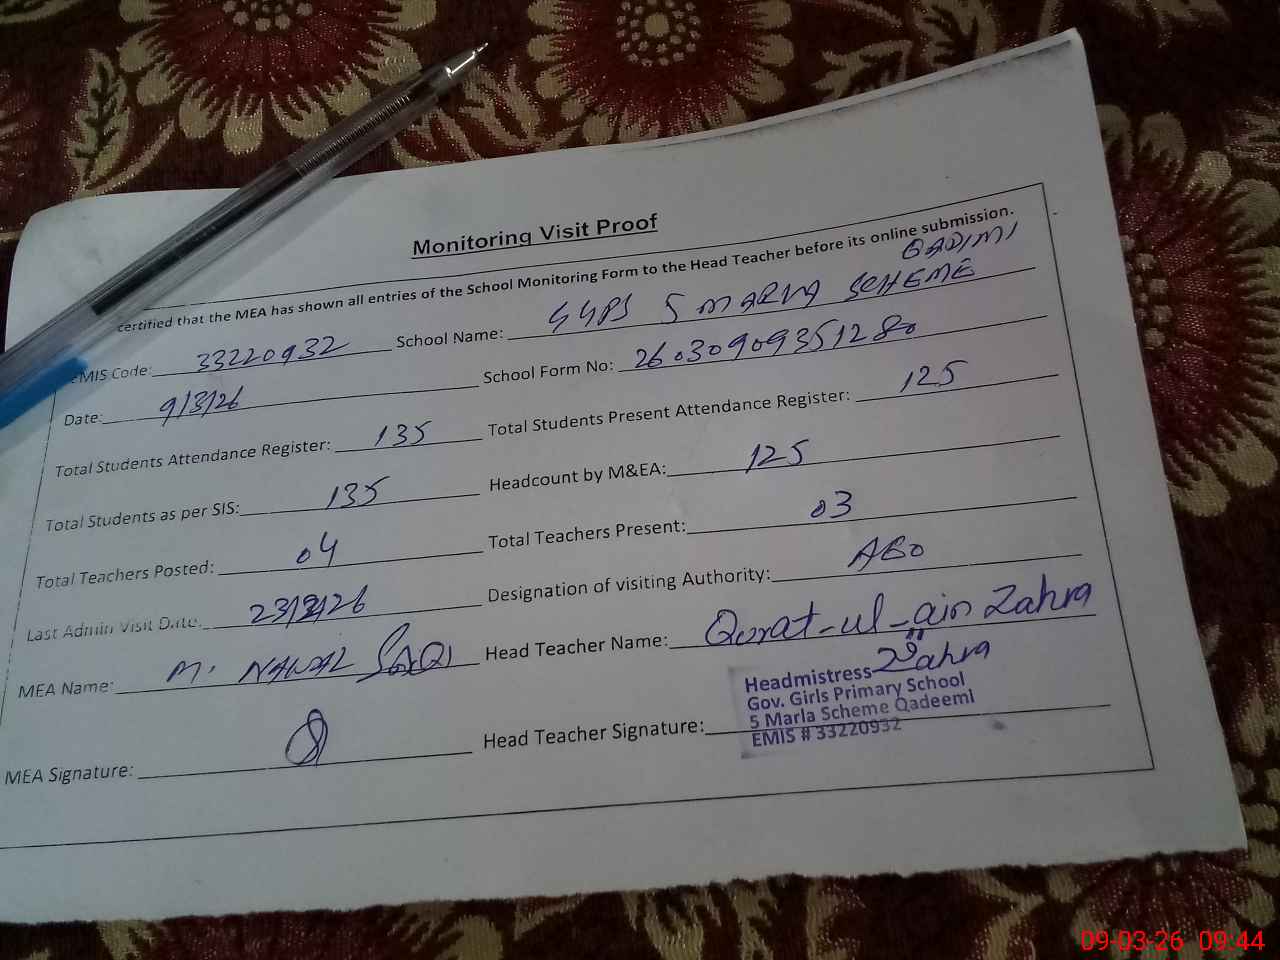 Monitoring Visit Proof
certified that the MEA has shown all entries of the School Monitoring Form to the Head Teacher before its online submission.
EMIS Code: 33220932 School Name: GGPS 5 MARLA SCHEME QADIMI
Date: 9/3/26 School Form No: 26030909351280
Total Students Attendance Register: 135 Total Students Present Attendance Register: 125
Total Students as per SIS: 135 Headcount by M&EA: 125
Total Teachers Posted: 04 Total Teachers Present: 03
Last Admin Visit Date: 23/2/26 Designation of visiting Authority: AEO
MEA Name: M. NAWAZ Head Teacher Name: Qurat-ul-ain Zahra
MEA Signature: Head Teacher Signature: Zahra
Headmistress
Gov. Girls Primary School
5 Marla Scheme Qadeemi
EMIS # 33220932
09-03-26 09:44